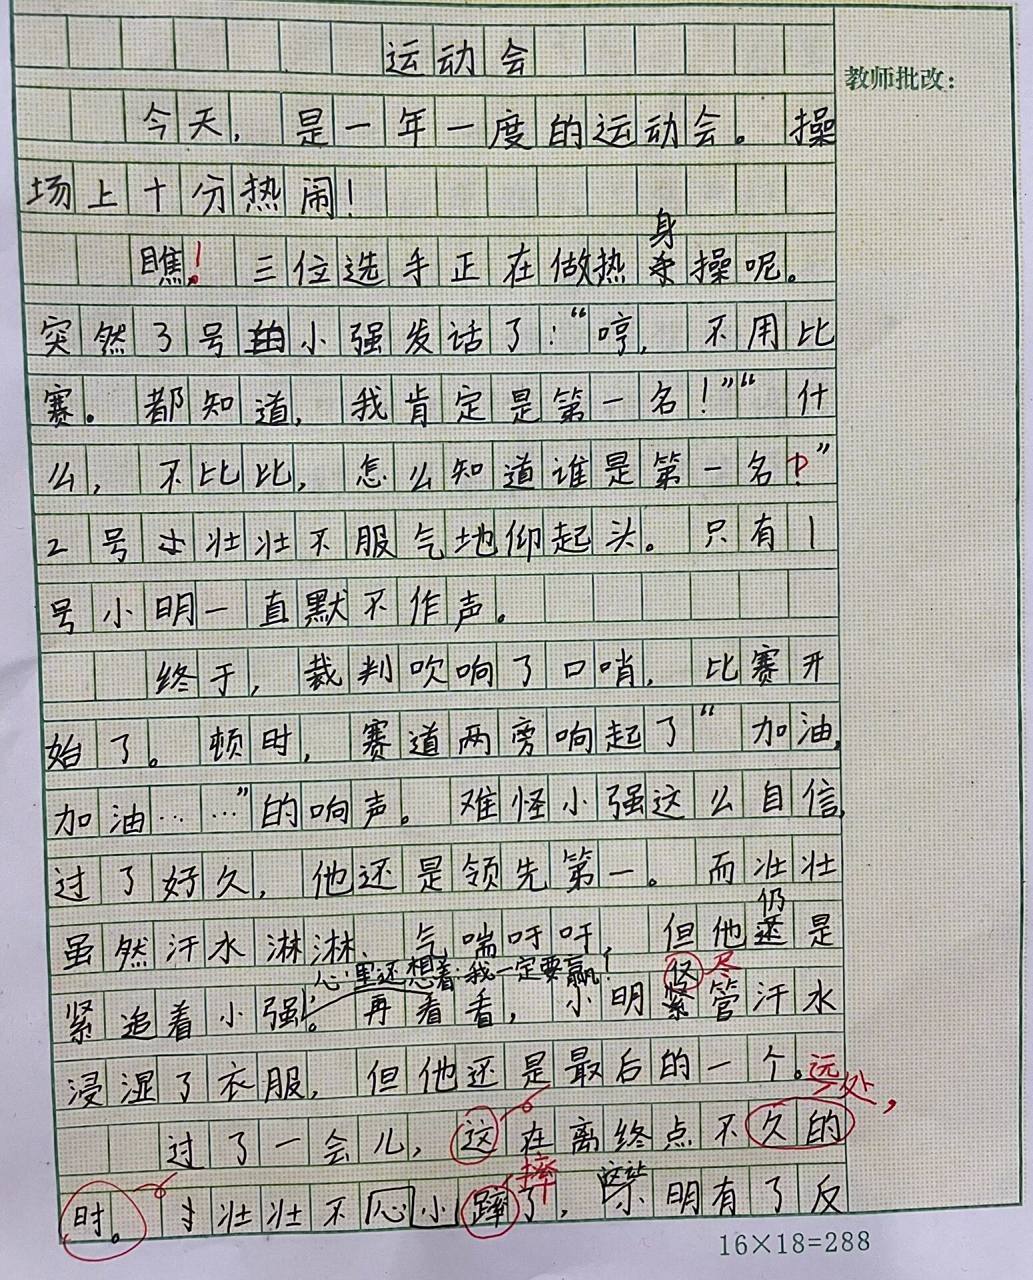 运动会
教师批改：
今天，是一年一度的运动会。操
场上十分热闹！
瞧！三位选手正在做热身操呢。
突然3号小强发话了：“哼，不用比
赛。都知道，我肯定是第一名！”“什
么，不比比，怎么知道谁是第一名？”
2号壮壮不服气地仰起头。只有1
号小明一直默不作声。
终于，裁判吹响了口哨，比赛开
始了。顿时，赛道两旁响起了“加油，
加油……”的响声。难怪小强这么自信，
过了好久，他还是领先第一。而壮壮
仍
虽然汗水淋淋、气喘吁吁，但他还是
心里还想着：我一定要赢！
仅尽
紧追着小强。再看看，小明管汗水
浸湿了衣服，但他还是最后的一个。远
处，
过了一会儿，这在离终点不久的
摔
时。壮壮不心小蹿了，明有了反
16×18=288